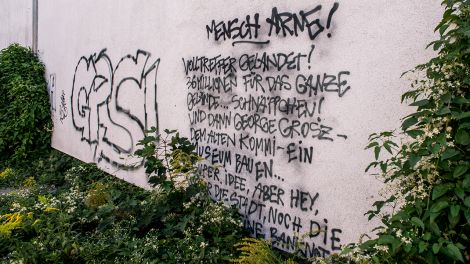 MENSCH ARNO!
VOLLTREFFER GELANDET!
36 MILLIONEN FÜR DAS GANZE
GELÄNDE... SCHNÄPPCHEN!
UND DANN GEORGE GROSZ –
DEM ALTEN KOMMI – EIN
MUSEUM BAUEN...
SUPER IDEE, ABER HEY,
DIE STADT, NOCH DIE